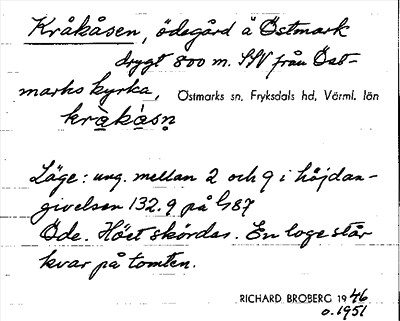 Kråkåsen, ödegård å Östmark
drygt 800 m. SSV från Öst-
marks kyrka, Östmarks sn, Fryksdals hd, Värml. län
kràkásn̥
Läge: ung. mellan 2 och 9 i höjdan-
givelsen 132.9 på G87
Öde. Höet skördas. En loge står
kvar på tomten.
RICHARD BROBERG 1946
o. 1951